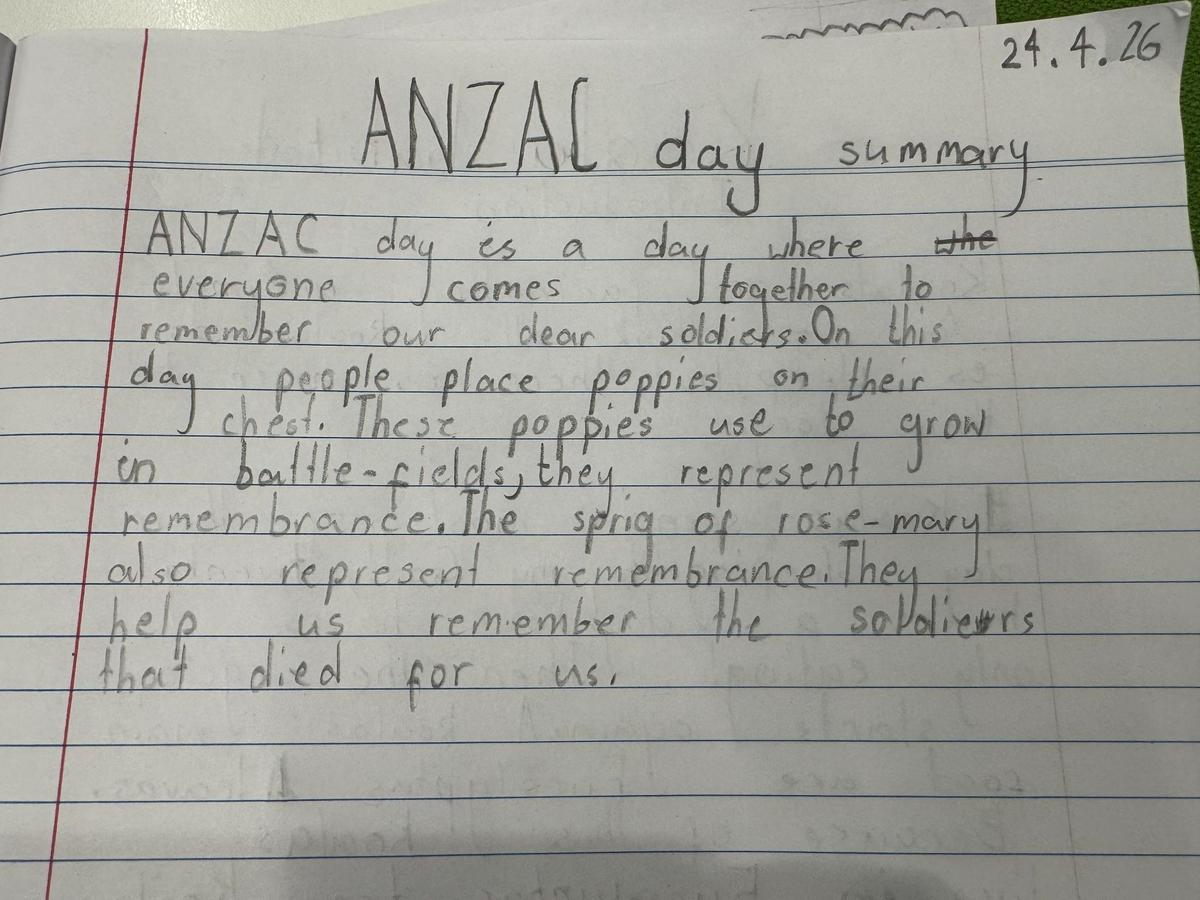 24.4.26
ANZAC day summary
ANZAC day is a day where the
everyone comes together to
remember our dear soldiers.On this
day people place poppies on their
chest. These poppies use to grow
in battle-fields, they represent
remembrance. The sprig of rose-mary
also represent remembrance. They
help us remember the soldiers
that died for us.